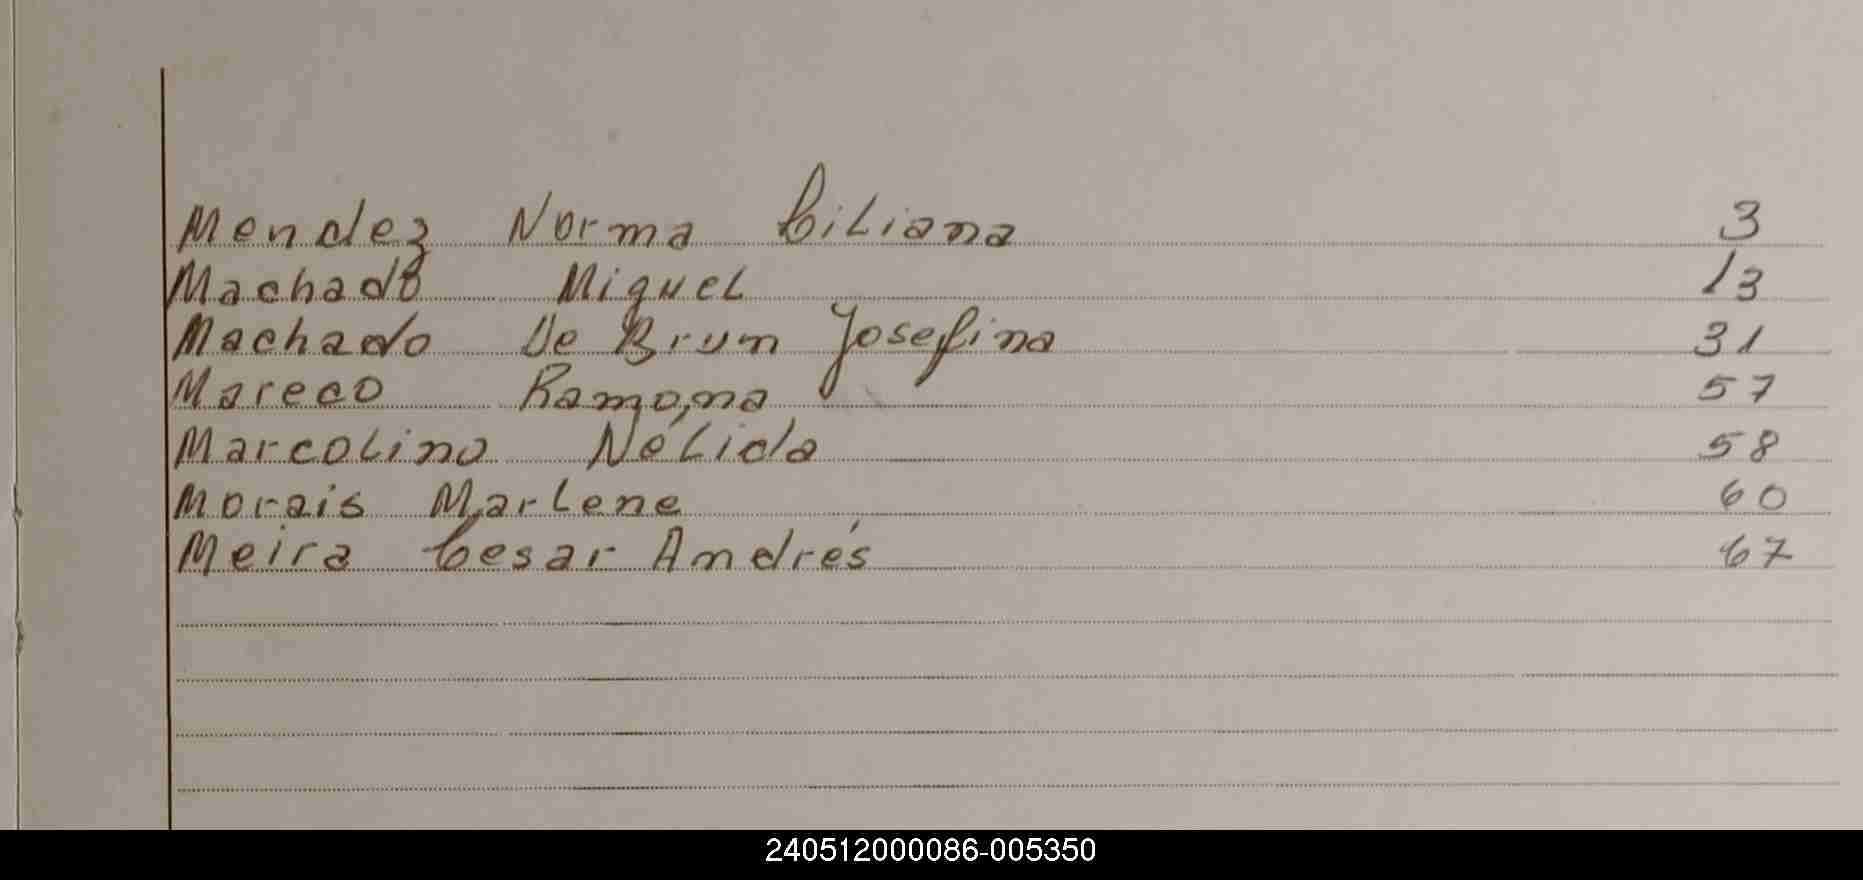 Mendez Norma Liliana 3
Machado Miguel 13
Machado De Brum Josefina 31
Mareco Ramona 57
Marcolino Nélida 58
Morais Marlene 60
Meira Cesar Andrés 67
240512000086-005350